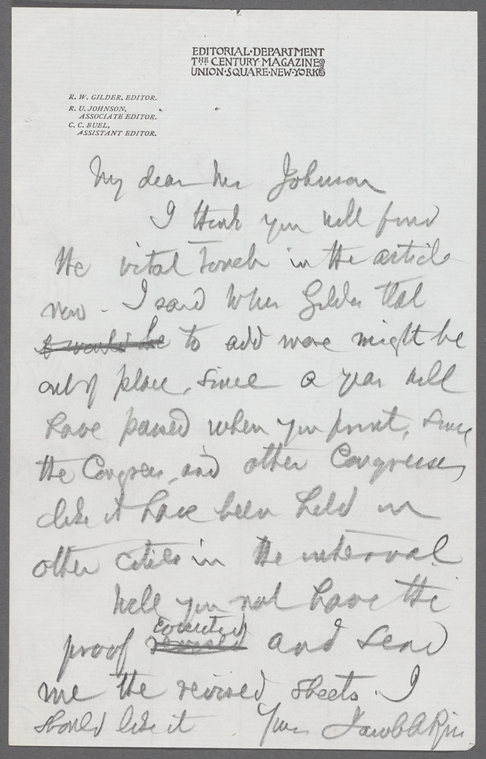 EDITORIAL·DEPARTMENT
THE CENTURY MAGAZINE
UNION·SQUARE·NEW·YORK
R. W. GILDER, EDITOR.
R. U. JOHNSON,
ASSOCIATE EDITOR.
C. C. BUEL,
ASSISTANT EDITOR.
My dear Mr Johnson
I think you will find
the vital touch in the article
now. I said to Mr Gilder that
it would be to add more might be
out of place, since a year will
have passed when you print, since
the Congress, and other Congresses
like it have been held in
other cities in the interval
Will you not have the
corrected
proof revised and send
me the revised sheets. I
should like it Yours Jacob A Riis